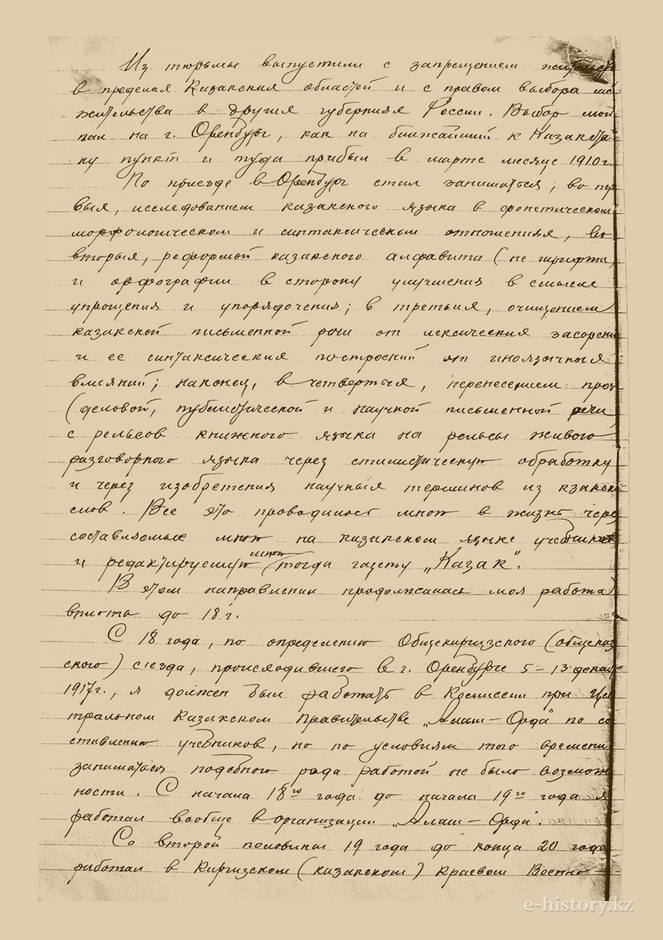 Из тюрьмы выпустили с запрещением жительст
в пределах Казакских областей и с правом выбора ме
жительства в других губерниях России. Выбор мой
пал на г. Оренбург, как на ближайший к Казакста
ну пункт и туда прибыл в марте месяце 1910 г.
По приезде в Оренбург стал заниматься; во пер
вых, исследованием казакского языка в фонетическом
морфологическом и синтаксическом отношениях, во
вторых, реформой казакского алфавита (не шрифта)
и орфографии в сторону улучшения в смысле
упрощения и упорядочения; в третьих, очищением
казакской письменной речи от лексических засорени
и ее синтаксических построений от иноязычных
влияний; наконец, в четвертых, перенесением проз
(деловой, публистической и научной письменной речи
с рельсов книжного языка на рельсы живого
разговорного языка через стилистическую обработку
и через изобретения научных терминов из казакс
слов. Все это проводилось мною в жизнь через
составляемые мною на казакском языке учебники
и редактируемую мною тогда газету „Казак".
В этом направлении продолжалась моя работа
вплоть до 18 г.
С 18 года, по определению Общекиргизского (общеказ
ского) съезда, происходившего в г. Оренбурге 5–13 декаб
1917 г., я должен был работать в Комиссии при Цен
тральном Казакском Правительстве „Алаш-Орда" по со
ставлению учебников, но по условиям того времени
заниматься подобного рода работой не было возмож
ности. С начала 18го года до начала 19го года я
работал вообще в организации „Алаш-Орда".
Со второй половины 19 года до конца 20 года
работал в Киргизском (казакском) Краевом Военно
e-history.kz